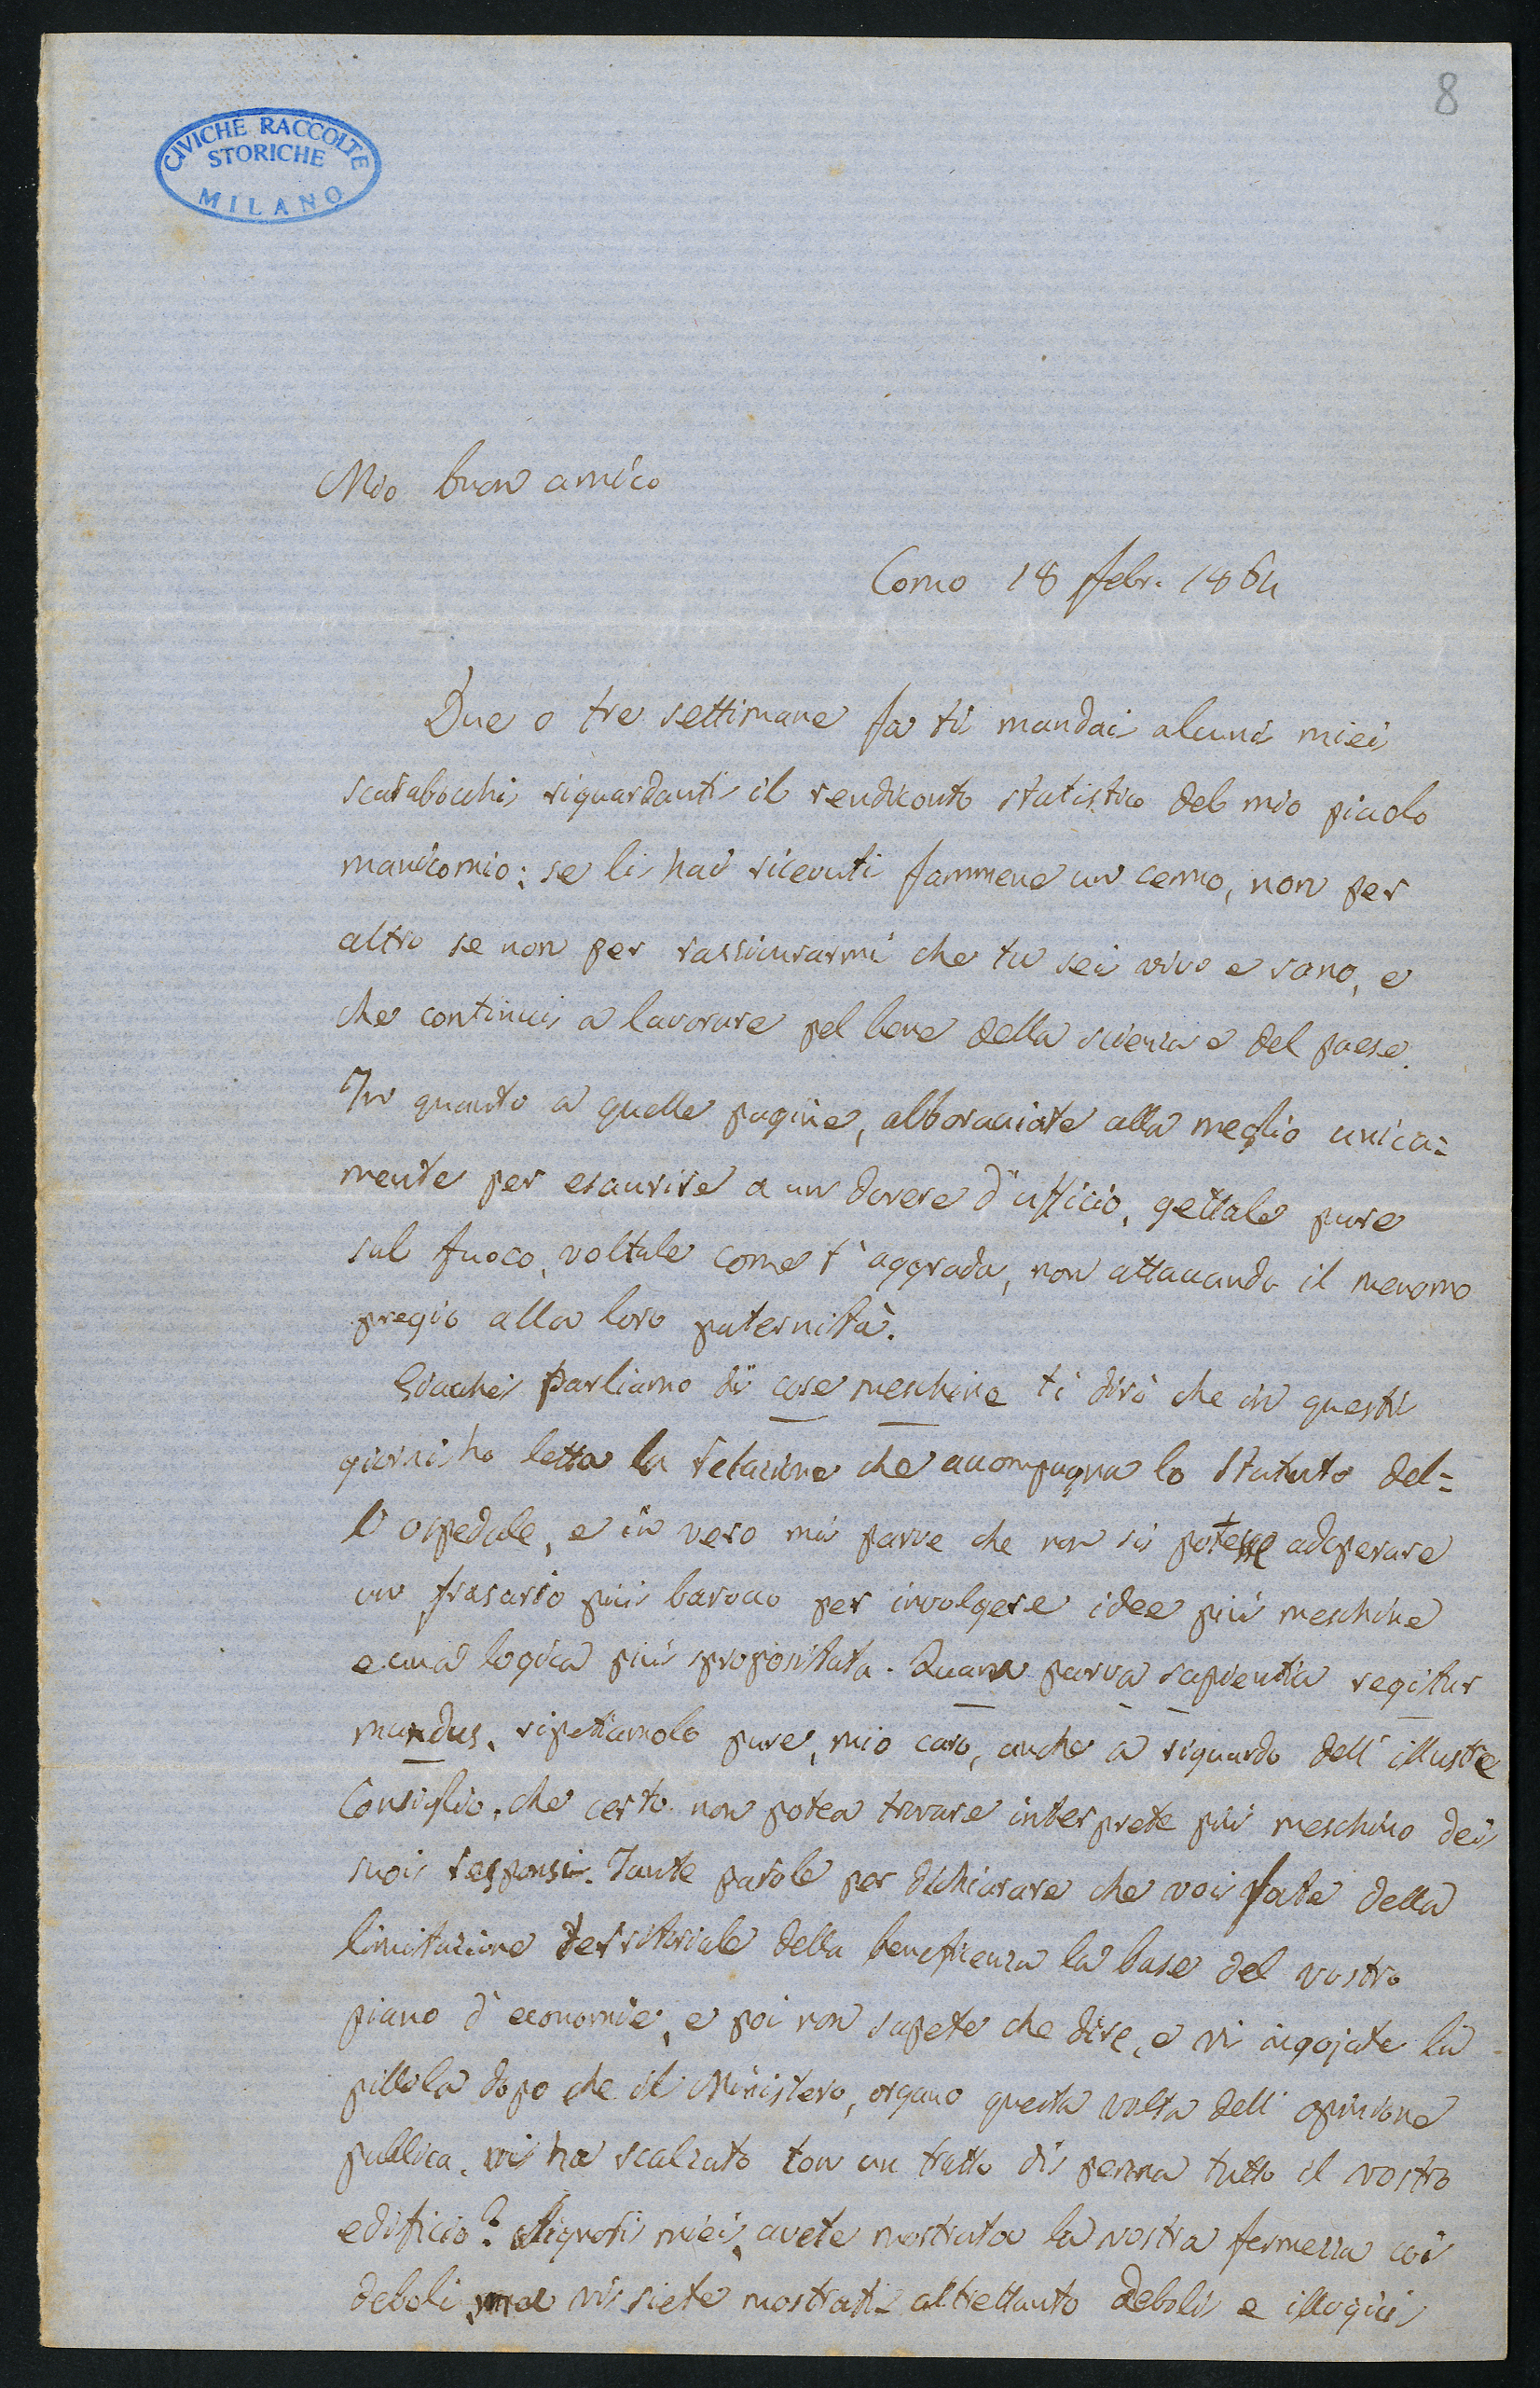 8
CIVICHE RACCOLTE
STORICHE
MILANO
Mio buon amico
Como 18 febr. 1864
Due o tre settimane fa ti mandai alcuni miei
scarabocchi riguardanti il rendiconto statistico del mio piccolo
manicomio: se li hai ricevuti fammene un cenno, non per
altro se non per rassicurarmi che tu sei vivo e sano, e
che continui a lavorare pel bene della scienza e del paese.
In quanto a quelle pagine, abborracciate alla meglio unica=
mente per esaurire a un dovere d'ufficio, gettale pure
sul fuoco, voltale come t'aggrada, non attaccando il menomo
pregio alla loro paternità.
Giacchè parliamo di cose meschine ti dirò che in questi
giorni ho letta la relazione che accompagna lo Statuto del=
l'ospedale, e in vero mi parve che non si potesse adoperare
un frasario più barocco per involgere idee più meschine
e una logica più spropositata. Quam parva sapientia regitur
mundus, ripetiamolo pure, mio caro, anche a riguardo dell'illustre
Consiglio, che certo non potea trovare interprete più meschino dei
suoi responsi. Tante parole per dichiarare che voi fate della
limitazione territoriale della beneficenza la base del vostro
piano d'economie, e poi non sapete che dire, e vi ingojate la
pillola dopo che il Ministero, organo questa volta dell'opinione
pubblica, vi ha scalzato con un tratto di penna tutto il vostro
edificio? Signori miei, avete mostrata la vostra fermezza coi
deboli, ma vi siete mostrati altrettanto deboli e illogici